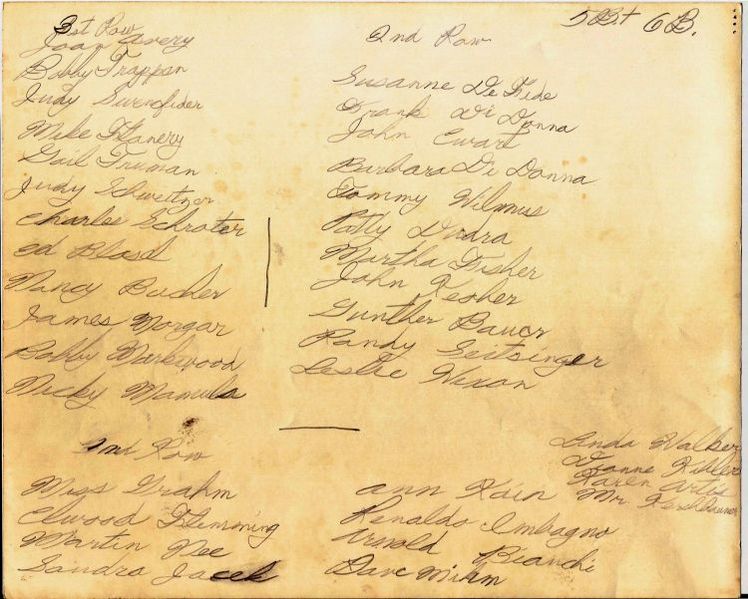 5B+ 6B.
1st Row
Joan Avery
Bobby Trappen
Judy
Mike Flanery
Gail Truman
Judy Schweitzer
Charles Schrater
Ed Blasd
Nancy Bucher
James Morgan
Bobby Markwood
Nicky Mamula
2nd Row
Susanne De Fide
Frank Di Donna
John Ewart
Barbara Di Donna
Tommy Wilmus
Patty Dudra
Martha Fisher
John Keoher
Gunther Bauer
Randy Seitsinger
Leslie Nixon
2nd Row
Miss Grahm
Elwood Flemming
Martin Nee
Sandra Jacek
Ann Kain
Renaldo Imbagno
Arnold Bianchi
Dave Mihm
Linda Walker
Karen Artis
Mr